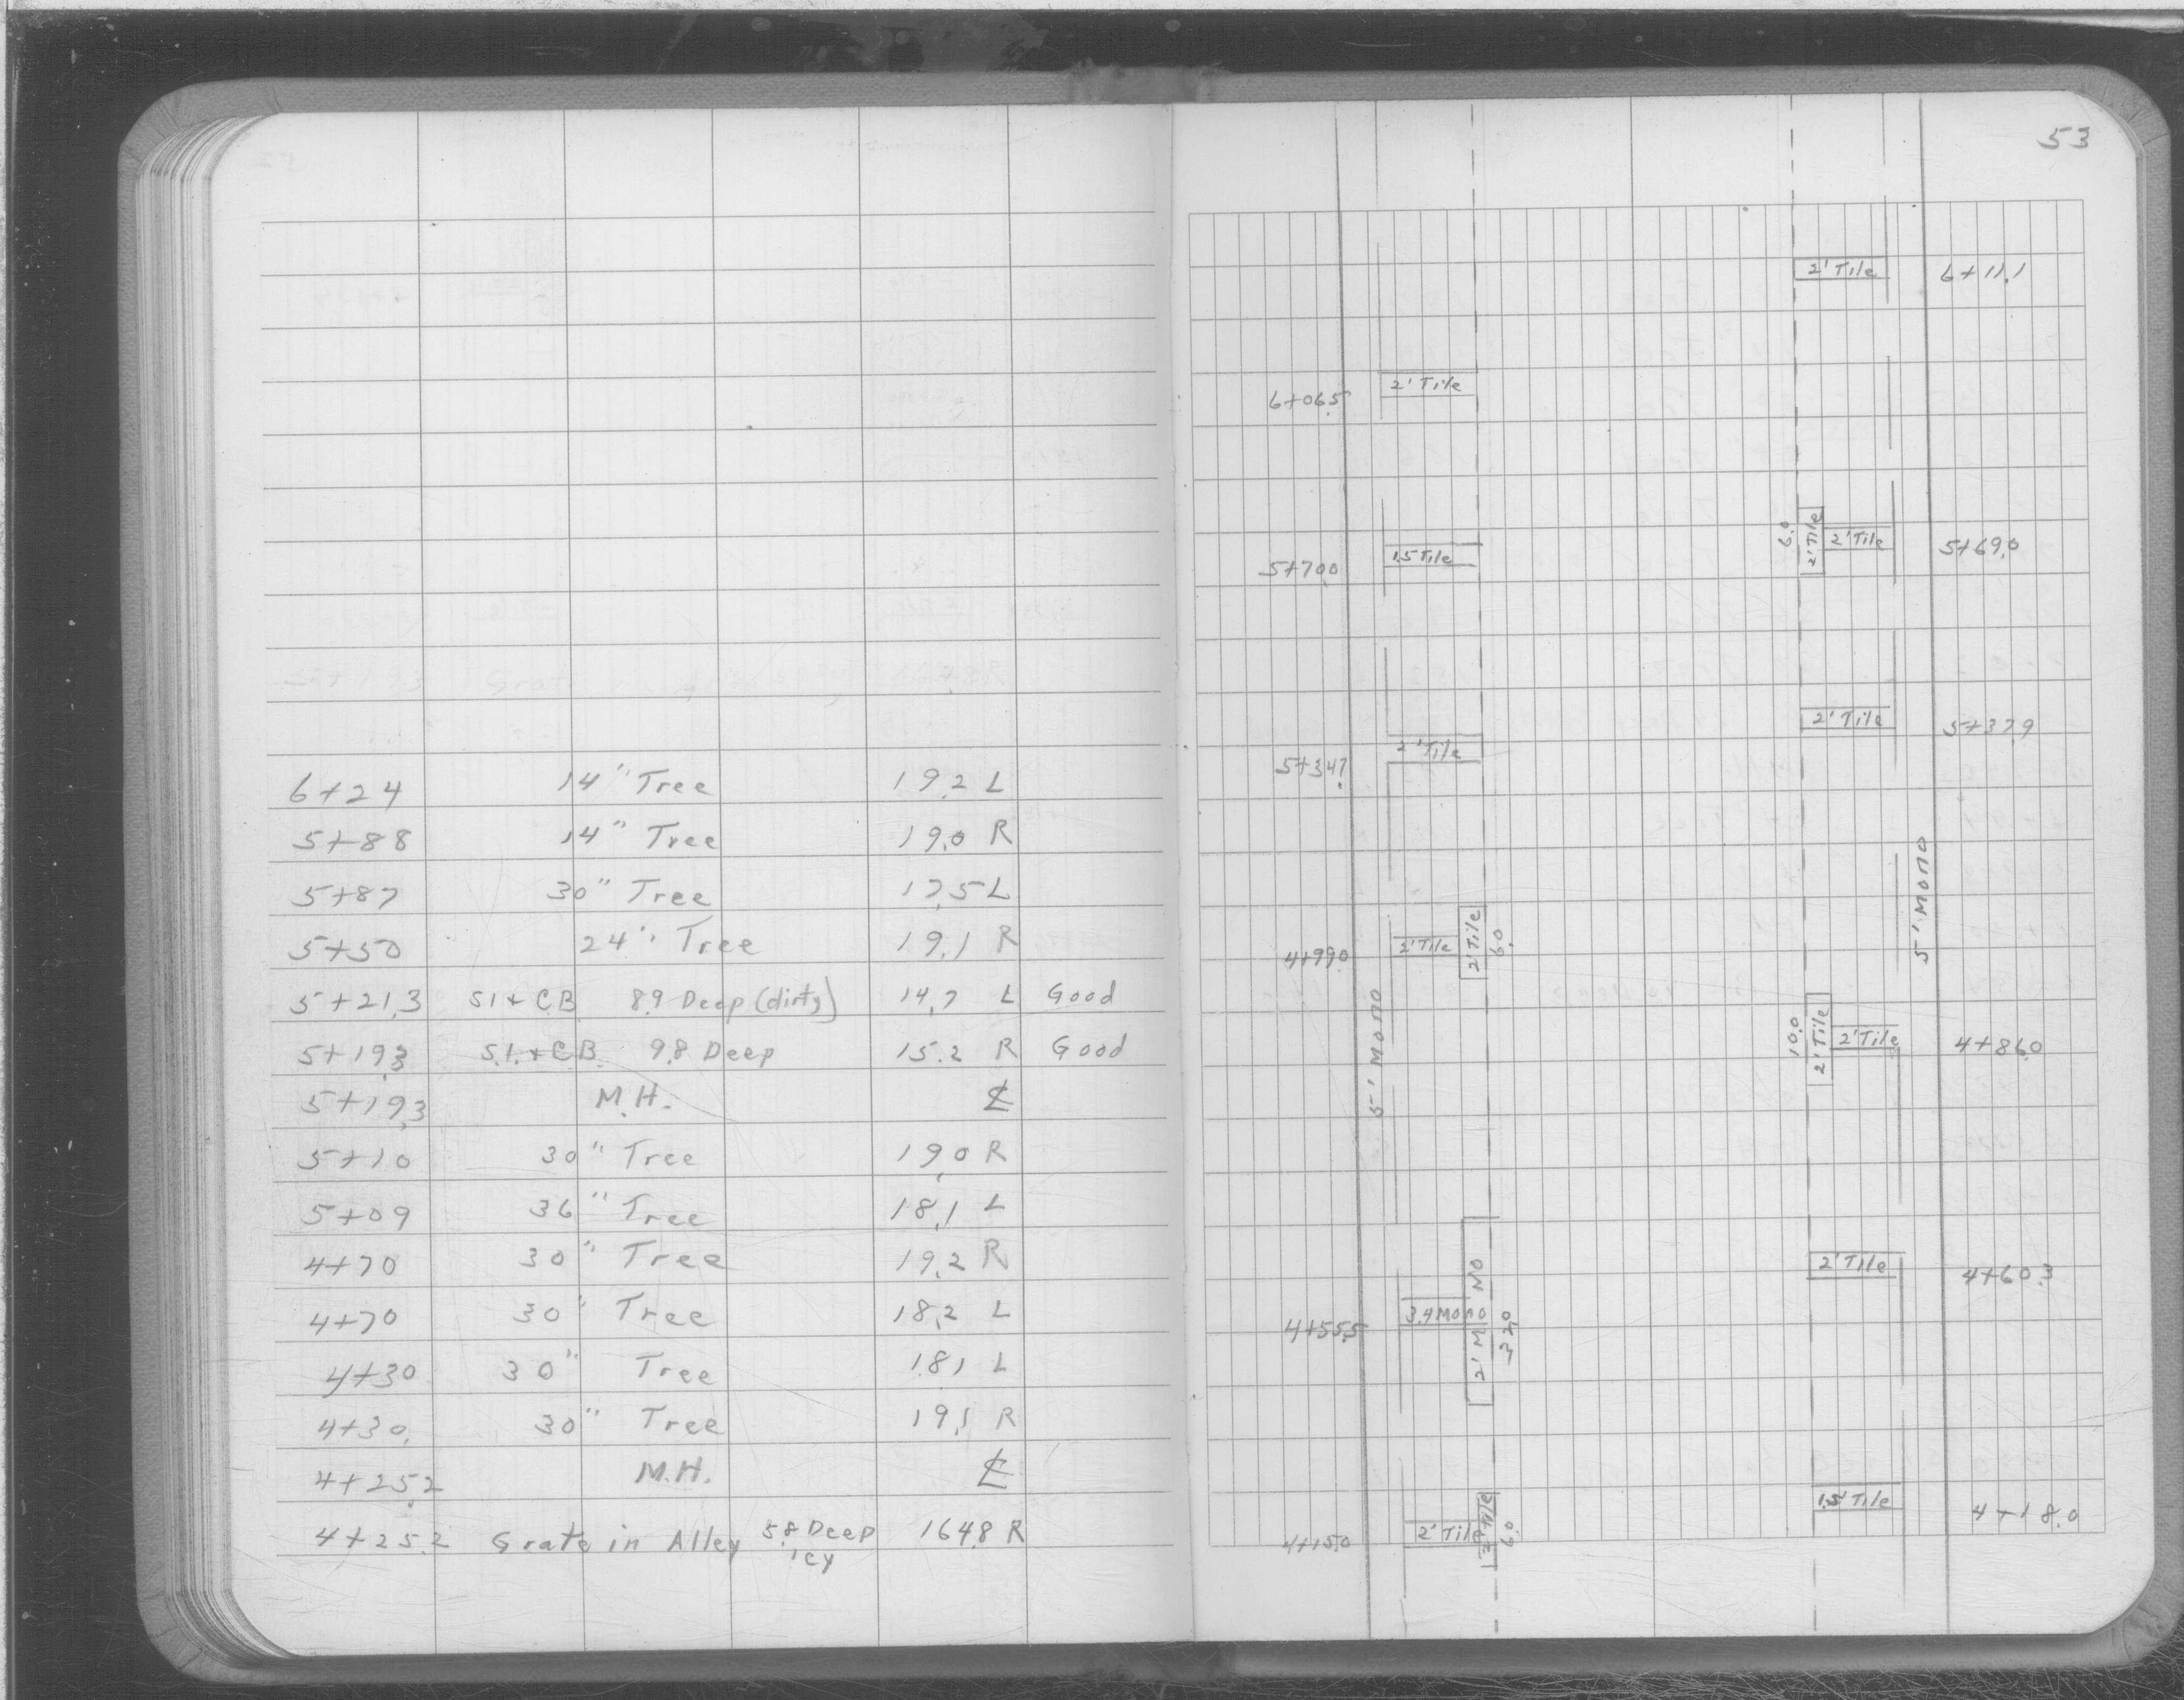 53
6+24 14" Tree 19.2 L
5+88 14" Tree 19.0 R
5+87 30" Tree 17.5 L
5+50 24" Tree 19.1 R
5+21.3 S.I + C.B 8.9 Deep (dirty) 14.7 L Good
5+19.3 S.I. + C.B. 9.8 Deep 15.2 R Good
5+19.3 M.H. ℄
5+10 30" Tree 19.0 R
5+09 36" Tree 18.1 L
4+70 30" Tree 19.2 R
4+70 30" Tree 18.2 L
4+30 30" Tree 18.1 L
4+30. 30" Tree 19.1 R
4+25.2 M.H. ℄
4+25.2 Grate in Alley 5.8 Deep 164.8 R
icy
2' Tile 6+11.1
6+06.5 2' Tile
5+70.0 1.5 Tile
6.0 2' Tile 2' Tile 5+69.0
2' Tile 5+37.9
5+34.7 2' Tile
5' Mono
4+99.0 2' Tile 2' Tile 6.0
5' Mono
10.0 2' Tile 2' Tile 4+86.0
2' Tile 4+60.3
4+55.5 3.4 Mono 2' Mono 32.0
1.5' Tile 4+18.0
4+15.0 2' Tile 2' Tile 6.0